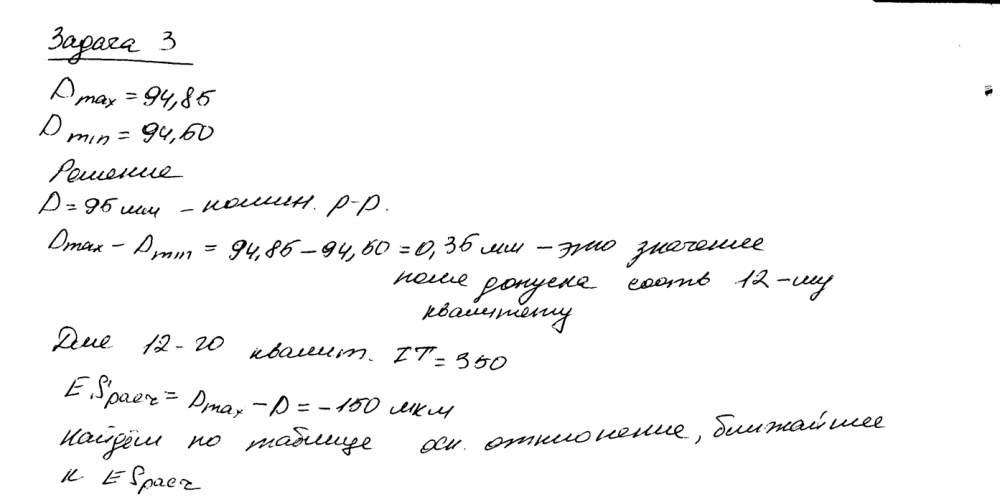 Задача 3
Dmax = 94,85
Dmin = 94,50
Решение
D = 95 мм – номин. р-р.
Dmax – Dmin = 94,85 – 94,50 = 0,35 мм – это значение
поля допуска соотв 12-му
квалитету
Для 12-го квалит. IT = 350
ESрасч = Dmax – D = – 150 мкм
Найдём по таблице осн. отклонение, ближайшее
к ESрасч